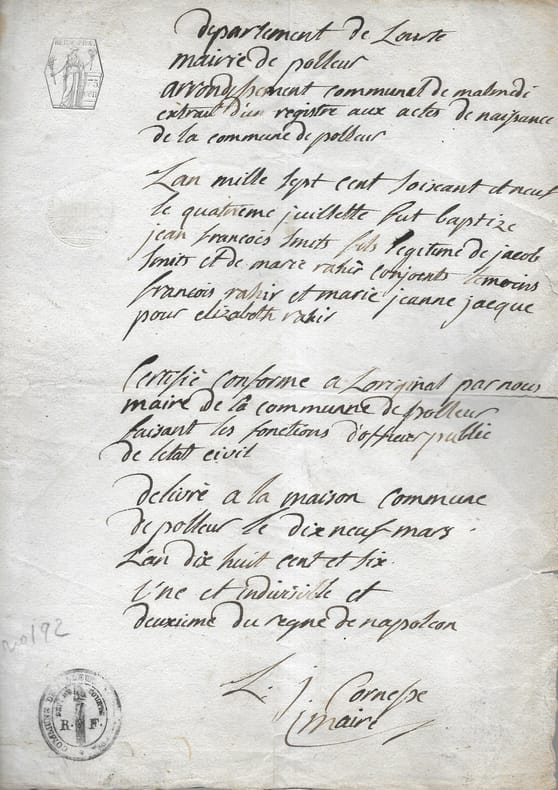 departement de Lourte
mairie de polleur
arrondissement communal de malmedi
extrait d'un registre aux actes de naissance
de la commune de polleur
Lan mille sept cent soixant et neuf
le quatrieme juillette fut baptize
jean francois smits fils legitime de jacob
smits et de marie rahir conjoents temoins
francois rahir et marie jeanne jacque
pour elizabeth rahir
Certifié conforme a Loriginal par nous
maire de la commune de polleur
faisant les fonctions d'officier public
de letat civil
delivré a la maison commune
de polleur le dix neuf mars
Lan dix huit cent et six
Une et indivisille et
deuxieme du regne de napoleon
L. j. Cornesse
maire
no/92
COMMUNE DE POLLEUR
R. F.